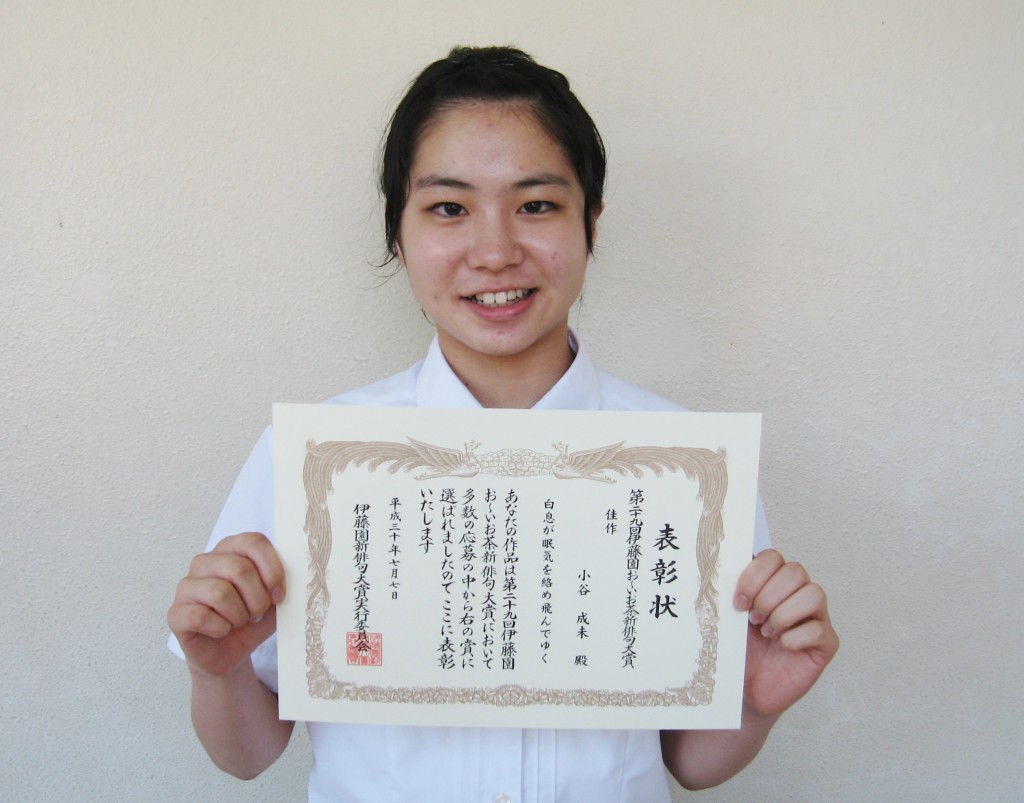 表彰状
第二十九回伊藤園お〜いお茶新俳句大賞
佳作
小谷 成未 殿
白息が眠気を絡め飛んでゆく
あなたの作品は第二十九回伊藤園
お〜いお茶新俳句大賞において
多数の応募の中から右の賞に
選ばれましたので ここに表彰
いたします
平成三十年七月七日
伊藤園新俳句大賞実行委員会